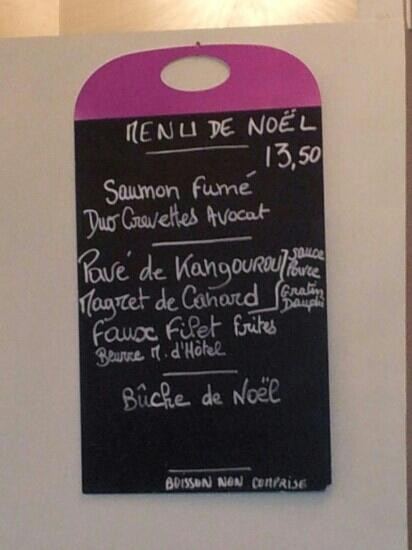 MENU DE NOËL
13,50
Saumon Fumé
Duo Crevettes Avocat
Pavé de Kangourou
Magret de Canard
sauce
Poivre
Gratin
Dauphi
Faux Filet frites
Beurre M. d'Hôtel
Bûche de Noël
BOISSON NON COMPRISE